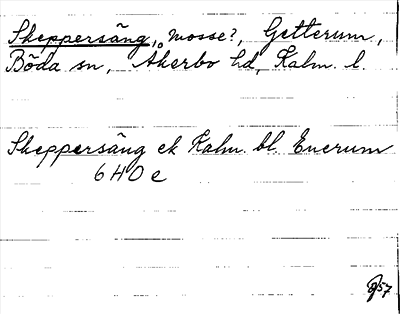 Skeppersäng, mosse?, Getterum,
Böda sn, Åkerbo hd, Kalm. l.
Skeppersäng ek Kalm. bl. Enerum
6 HO e
57